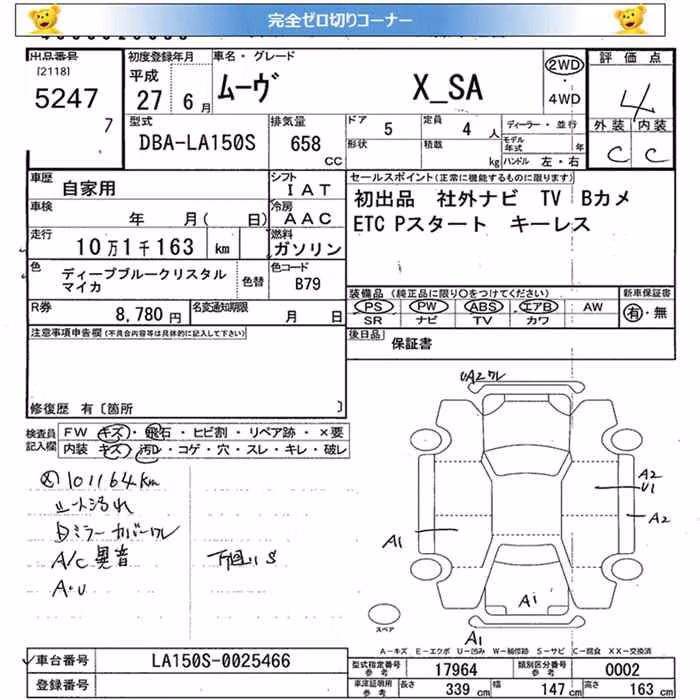 完全ゼロ切りコーナー
出品番号
[2118]
5247
7
初度登録年月
平成
27 6月
車名・グレード
ムーヴ X_SA
2WD
・
4WD
評価点
4
外装 内装
C C
型式
DBA-LA150S
排気量
658
CC
ドア
5
定員
4 人
形状
積載
kg
ディーラー・並行
モデル年式 年
ハンドル 左・右
車歴
自家用
シフト
IAT
車検
年 月( 日)
冷房
AAC
走行
10万1千163 km
燃料
ガソリン
色
ディープブルークリスタル
マイカ
色替
色コード
B79
R券
8,780円
名変通知期限
月 日
セールスポイント(正常に機能するものに限ります)
初出品 社外ナビ TV Bカメ
ETC Pスタート キーレス
装備品(純正品に限り○をつけてください)
PS PW ABS エアB AW
SR ナビ TV カワ
新車保証書
有・無
後日品
保証書
注意事項申告欄(不具合内容等は具体的に記入して下さい)
修復歴 有〔箇所 〕
検査員
記入欄
FW キズ・飛石・ヒビ割・リペア跡・×要
内装 キズ・汚レ・コゲ・穴・スレ・キレ・破レ
101164km
シート汚れ
ミラーカバーワレ
A/C異音
A・U
下廻りS
UA2ワレ
A2
U1
A2
A1
A1
A1
スペア
A-キズ E-エクボ U-凹み W-補修跡 S-サビ C-腐食 XX-交換済
車台番号
LA150S-0025466
登録番号
型式指定番号
参考
17964
類別区分番号
参考
0002
車庫証明用
参考
長さ 339cm 幅 147cm 高さ 163cm